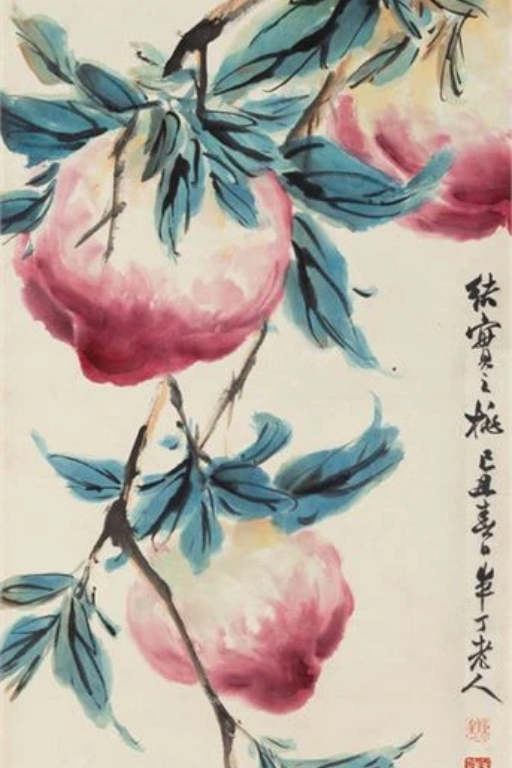 結實之桃己丑春日半丁老人